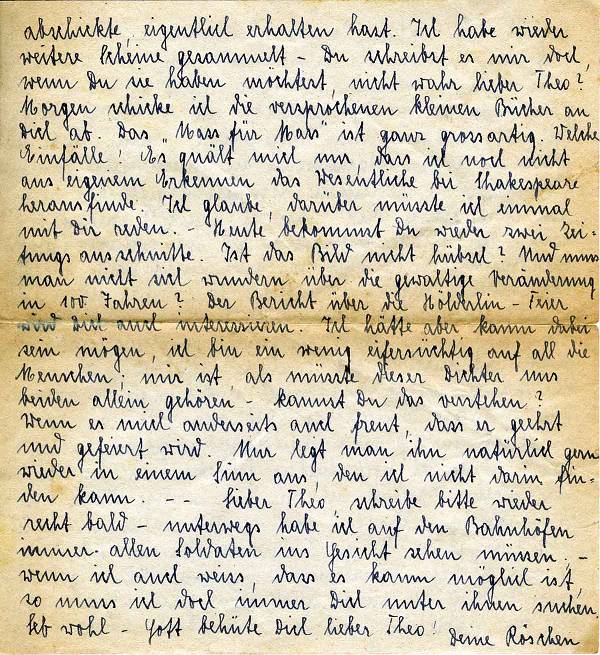 abschickte, eigentlich erhalten hast. Ich habe wieder
weitere Scheine gesammelt – Du schreibst es mir doch,
wenn Du sie haben möchtest, nicht wahr lieber Theo?
Morgen schicke ich die versprochenen kleinen Bücher an
Dich ab. Das "Mass für Mass" ist ganz grossartig. Welche
Einfälle! Es quält mich nur, dass ich noch nicht
aus eigenem Erkennen das Wesentliche bei Shakespeare
herausfinde. Ich glaube, darüber müsste ich einmal
mit dir reden. – Heute bekommst Du wieder zwei Zei-
tungsausschnitte. Ist das Bild nicht hübsch? Und muss
man nicht sich wundern über die gewaltige Veränderung
in 100 Jahren? Der Bericht über die Hölderlin-Feier
wird Dich auch interessieren. Ich hätte aber kaum dabei
sein mögen, ich bin ein wenig eifersüchtig auf all die
Menschen; mir ist, als müsste dieser Dichter uns
beiden allein gehören – kannst Du das verstehen?
Wenn es mich anderseits auch freut, dass er geehrt
und gefeiert wird. Nur legt man ihn natürlich gern
wieder in einem Sinn aus, den ich nicht darin fin-
den kann. -- Lieber Theo, schreibe bitte wieder
recht bald – unterwegs habe ich auf den Bahnhöfen
immer allen Soldaten ins Gesicht sehen müssen, –
wenn ich auch weiss, dass es kaum möglich ist,
so muss ich doch immer Dich unter ihnen suchen.
Leb wohl – Gott behüte Dich lieber Theo! Deine Röschen